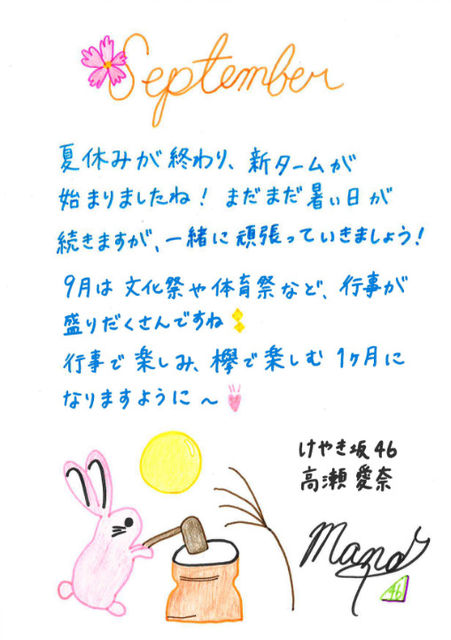 September
夏休みが終わり、新タームが
始まりましたね！まだまだ暑い日が
続きますが、一緒に頑張っていきましょう！
9月は文化祭や体育祭など、行事が
盛りだくさんですね
行事で楽しみ、欅で楽しむ1ヶ月に
なりますように〜
けやき坂46
高瀬愛奈
Mana
46